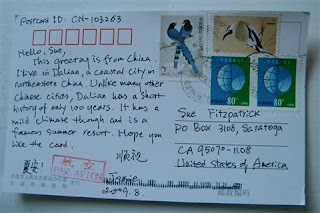 Postcard ID: CN-103263
Hello, Sue,
This greeting is from China.
I live in Dalian, a coastal city in
northeastern China. Unlike many other
Chinese cities, Dalian has a short
history of only 100 years. It has a
mild climate though and is a
famous summer resort. Hope you
like the card.
顺祝
夏安!
航空
PAR AVION
Josie
2009.8.
2
80分
80分
Sue Fitzpatrick
PO Box 3108, Saratoga
CA 95070-1108
United States of America
邮政编码